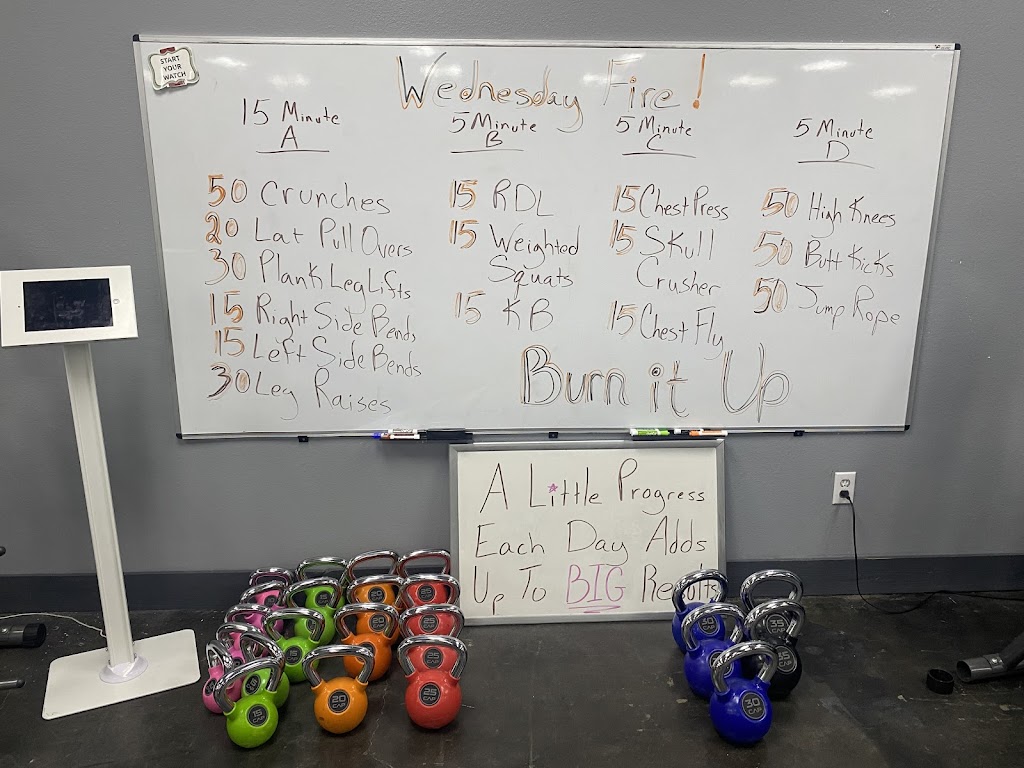 START
YOUR
WATCH
Wednesday Fire!
15 Minute
A
50 Crunches
20 Lat Pull Overs
30 Plank Leg Lifts
15 Right Side Bends
15 Left Side Bends
30 Leg Raises
5 Minute
B
15 RDL
15 Weighted
Squats
15 KB
5 Minute
C
15 Chest Press
15 Skull
Crusher
15 Chest Fly
5 Minute
D
50 High Knees
50 Butt Kicks
50 Jump Rope
Burn it Up
A Little Progress
Each Day Adds
Up To BIG Results
15
CAP
20
CAP
25
CAP
25
CAP
30
CAP
30
CAP
35
CAP